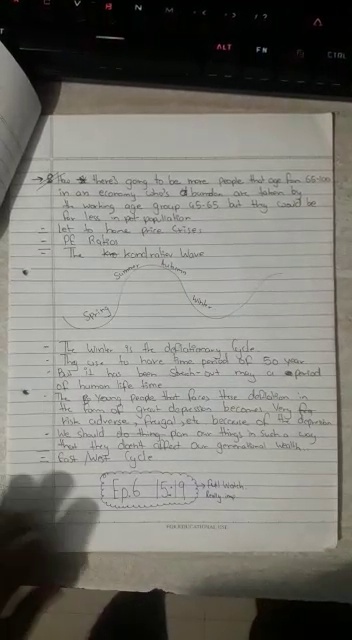 ALT FN CTRL
there's going to be more people that age from 65-100
in an economy who's abundan are taken by
the working age group 45-65 but they would be
far less in population
- Let to home price crises
- PE Ratios
- The Kondratiev Wave
Summer Autumn
Spring Winter
- The Winter is the deflationary Cycle
- This use to have time period of 50 year
- But it has been strech-out may a period
of human life time
- The Young people that faces these deflation in
the form of great depression becomes Very
risk adverse, frugal, etc because of the
- We should do thing plan our things in such a way
that they doesn't affect our generational wealth
- East/West Cycle
Ep.6 15:19 → Full Watch
FOR EDUCATIONAL USE